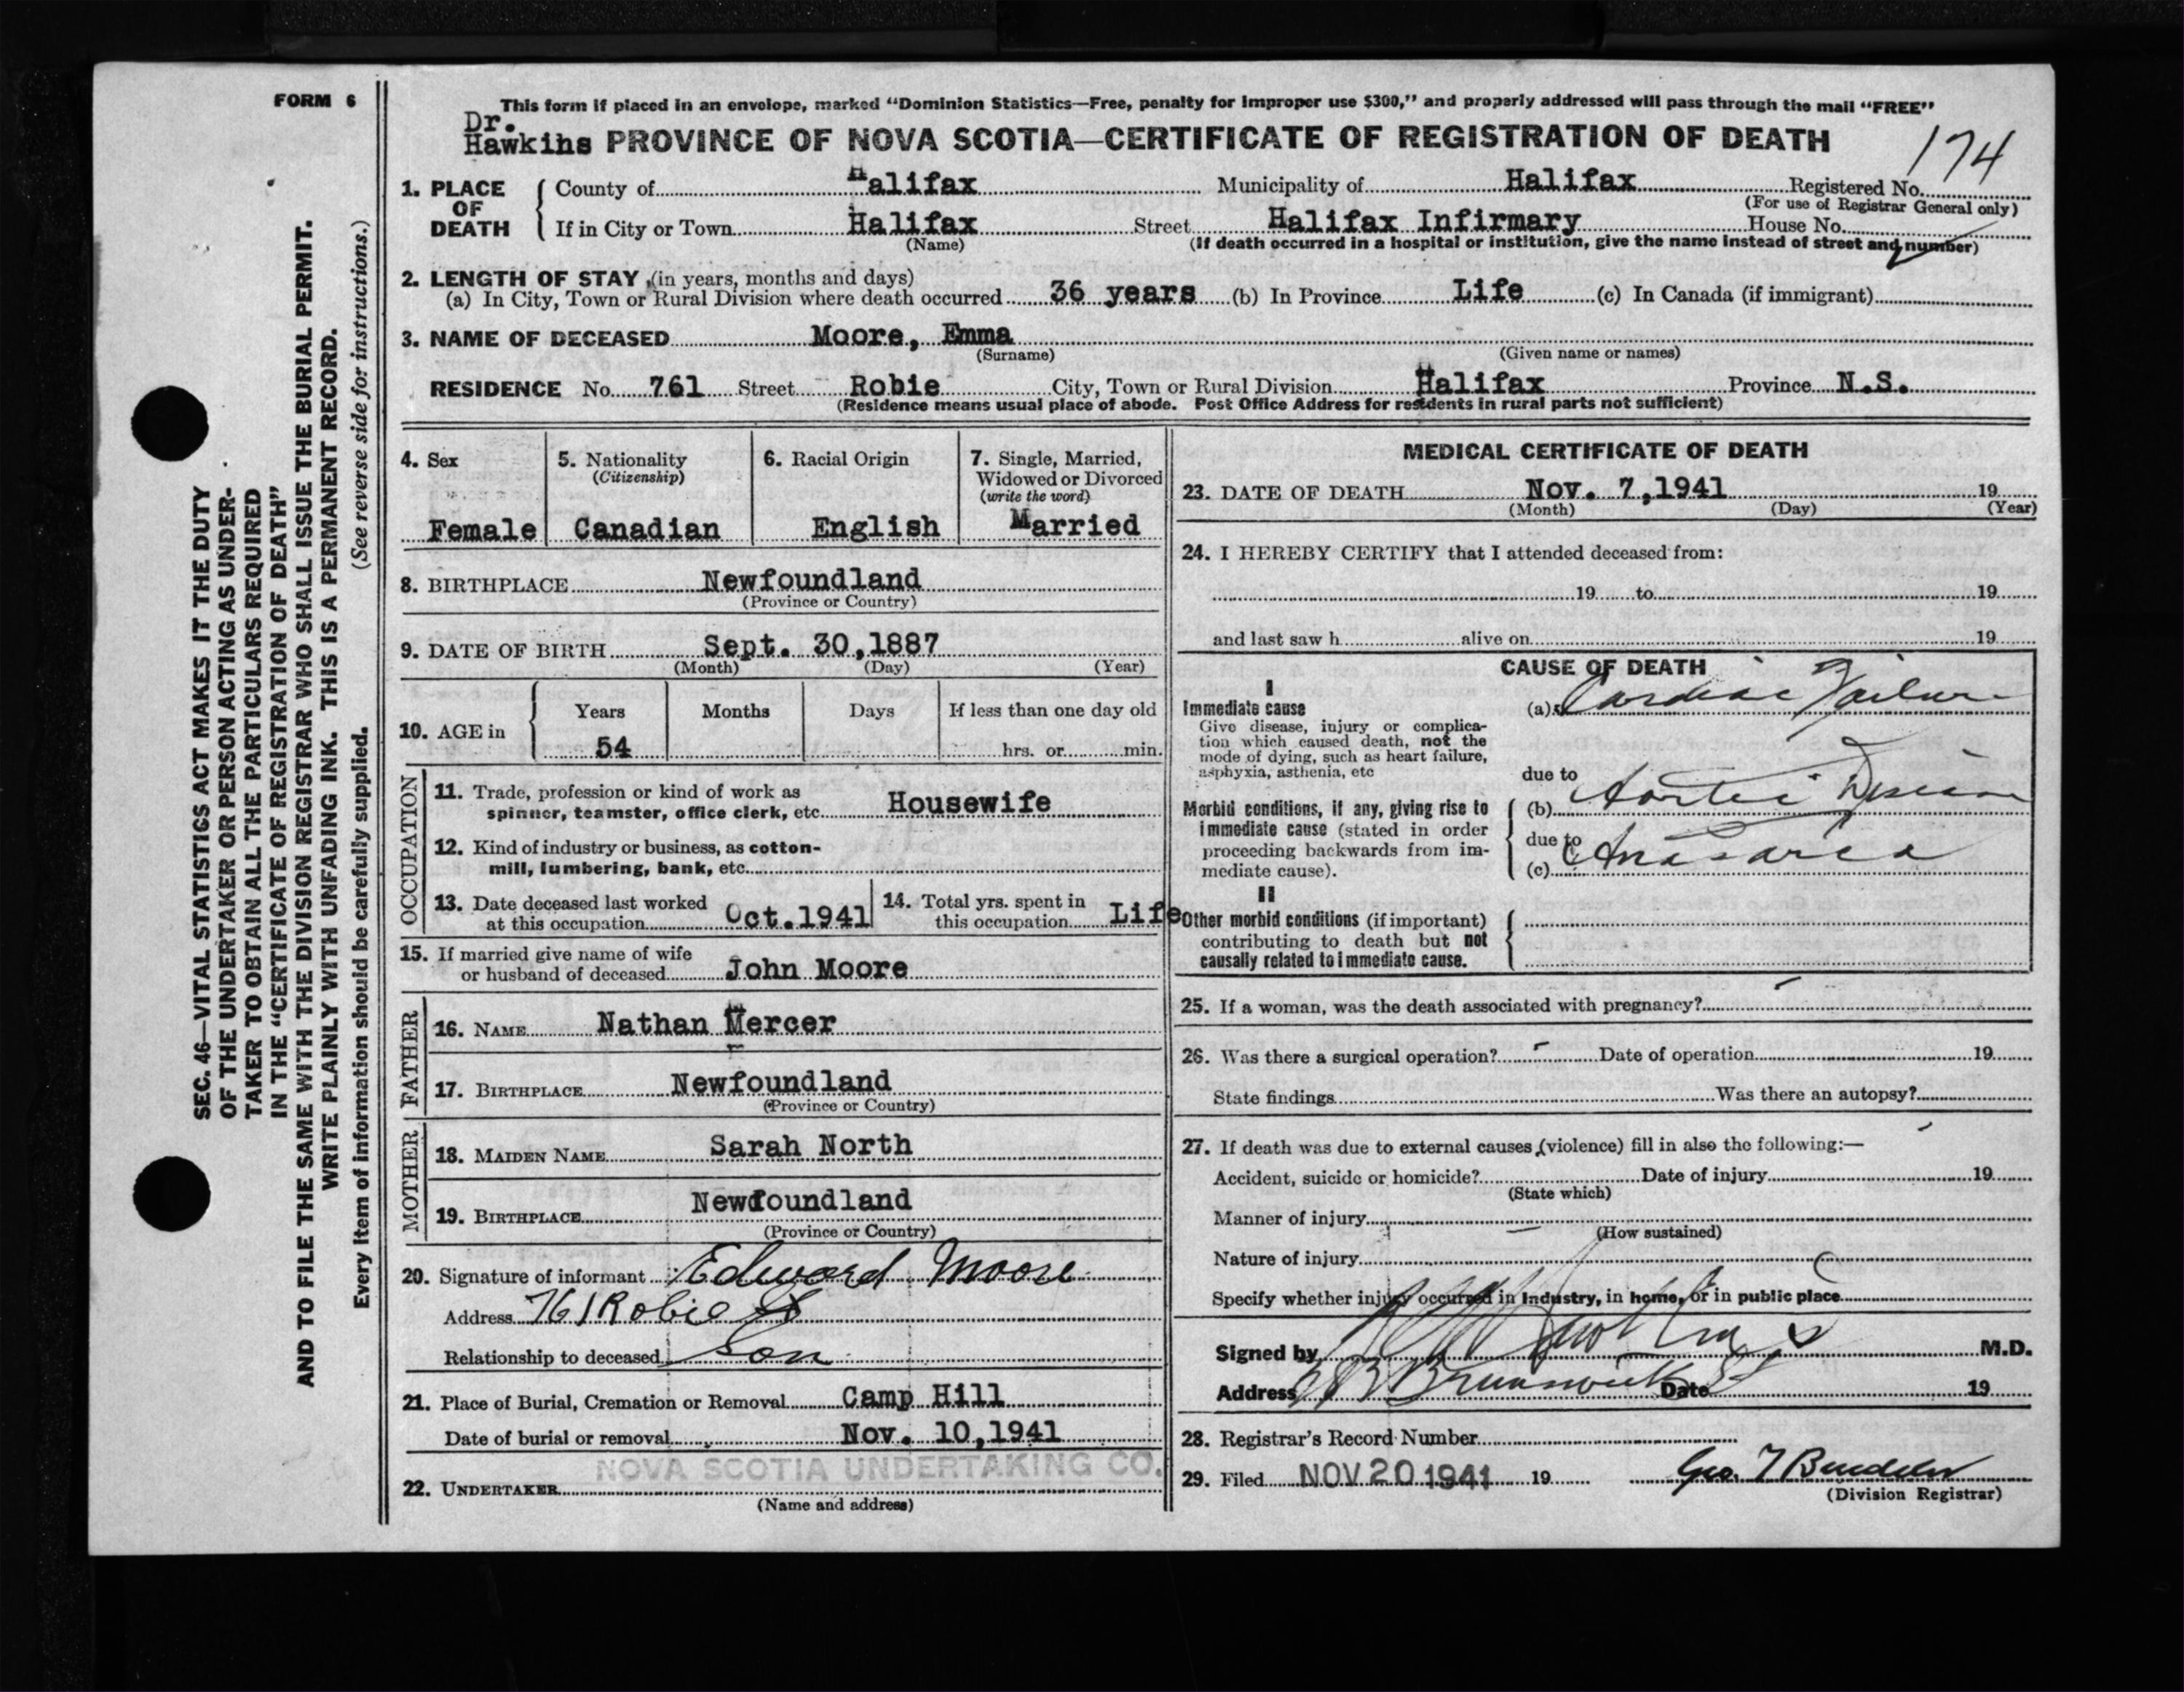 FORM 6
SEC. 46—VITAL STATISTICS ACT MAKES IT THE DUTY
OF THE UNDERTAKER OR PERSON ACTING AS UNDER-
TAKER TO OBTAIN ALL THE PARTICULARS REQUIRED
IN THE "CERTIFICATE OF REGISTRATION OF DEATH"
AND TO FILE THE SAME WITH THE DIVISION REGISTRAR WHO SHALL ISSUE THE BURIAL PERMIT.
WRITE PLAINLY WITH UNFADING INK. THIS IS A PERMANENT RECORD.
Every item of information should be carefully supplied. (See reverse side for instructions.)
This form if placed in an envelope, marked "Dominion Statistics—Free, penalty for improper use $300," and properly addressed will pass through the mail "FREE"
Dr.
Hawkins PROVINCE OF NOVA SCOTIA—CERTIFICATE OF REGISTRATION OF DEATH
174
1. PLACE OF DEATH County of Halifax Municipality of Halifax Registered No.
(For use of Registrar General only)
If in City or Town Halifax Street Halifax Infirmary House No.
(Name) (If death occurred in a hospital or institution, give the name instead of street and number)
2. LENGTH OF STAY (in years, months and days)
(a) In City, Town or Rural Division where death occurred 36 years (b) In Province Life (c) In Canada (if immigrant)
3. NAME OF DECEASED Moore, Emma
(Surname) (Given name or names)
RESIDENCE No. 761 Street Robie City, Town or Rural Division Halifax Province N.S.
(Residence means usual place of abode. Post Office Address for residents in rural parts not sufficient)
4. Sex
Female
5. Nationality
(Citizenship)
Canadian
6. Racial Origin
English
7. Single, Married,
Widowed or Divorced
(write the word)
Married
8. BIRTHPLACE Newfoundland
(Province or Country)
9. DATE OF BIRTH Sept. 30,1887
(Month) (Day) (Year)
10. AGE in
Years Months Days If less than one day old
54 hrs. or min.
OCCUPATION
11. Trade, profession or kind of work as
spinner, teamster, office clerk, etc. Housewife
12. Kind of industry or business, as cotton-
mill, lumbering, bank, etc.
13. Date deceased last worked
at this occupation Oct.1941
14. Total yrs. spent in
this occupation Life
15. If married give name of wife
or husband of deceased John Moore
FATHER
16. NAME Nathan Mercer
17. BIRTHPLACE Newfoundland
(Province or Country)
MOTHER
18. MAIDEN NAME Sarah North
19. BIRTHPLACE Newfoundland
(Province or Country)
20. Signature of informant Edward Moore
Address 761 Robie St
Relationship to deceased Son
21. Place of Burial, Cremation or Removal Camp Hill
Date of burial or removal Nov. 10,1941
NOVA SCOTIA UNDERTAKING CO.
22. UNDERTAKER
(Name and address)
MEDICAL CERTIFICATE OF DEATH
23. DATE OF DEATH Nov. 7,1941 19
(Month) (Day) (Year)
24. I HEREBY CERTIFY that I attended deceased from:
19 to 19
and last saw h alive on 19
CAUSE OF DEATH
I
Immediate cause
Give disease, injury or complica-
tion which caused death, not the
mode of dying, such as heart failure,
asphyxia, asthenia, etc
(a) Cardiac Failure
due to
Morbid conditions, if any, giving rise to
immediate cause (stated in order
proceeding backwards from im-
mediate cause).
(b) Aortic Disease
due to
(c) Anasarca
II
Other morbid conditions (if important)
contributing to death but not
causally related to immediate cause.
25. If a woman, was the death associated with pregnancy?
26. Was there a surgical operation? Date of operation 19
State findings Was there an autopsy?
27. If death was due to external causes (violence) fill in also the following:—
Accident, suicide or homicide? Date of injury 19
(State which)
Manner of injury
(How sustained)
Nature of injury
Specify whether injury occurred in industry, in home, or in public place
Signed by Hawkins M.D.
Address Brunswick St Date 19
28. Registrar's Record Number
29. Filed NOV 20 1941 19
(Division Registrar)